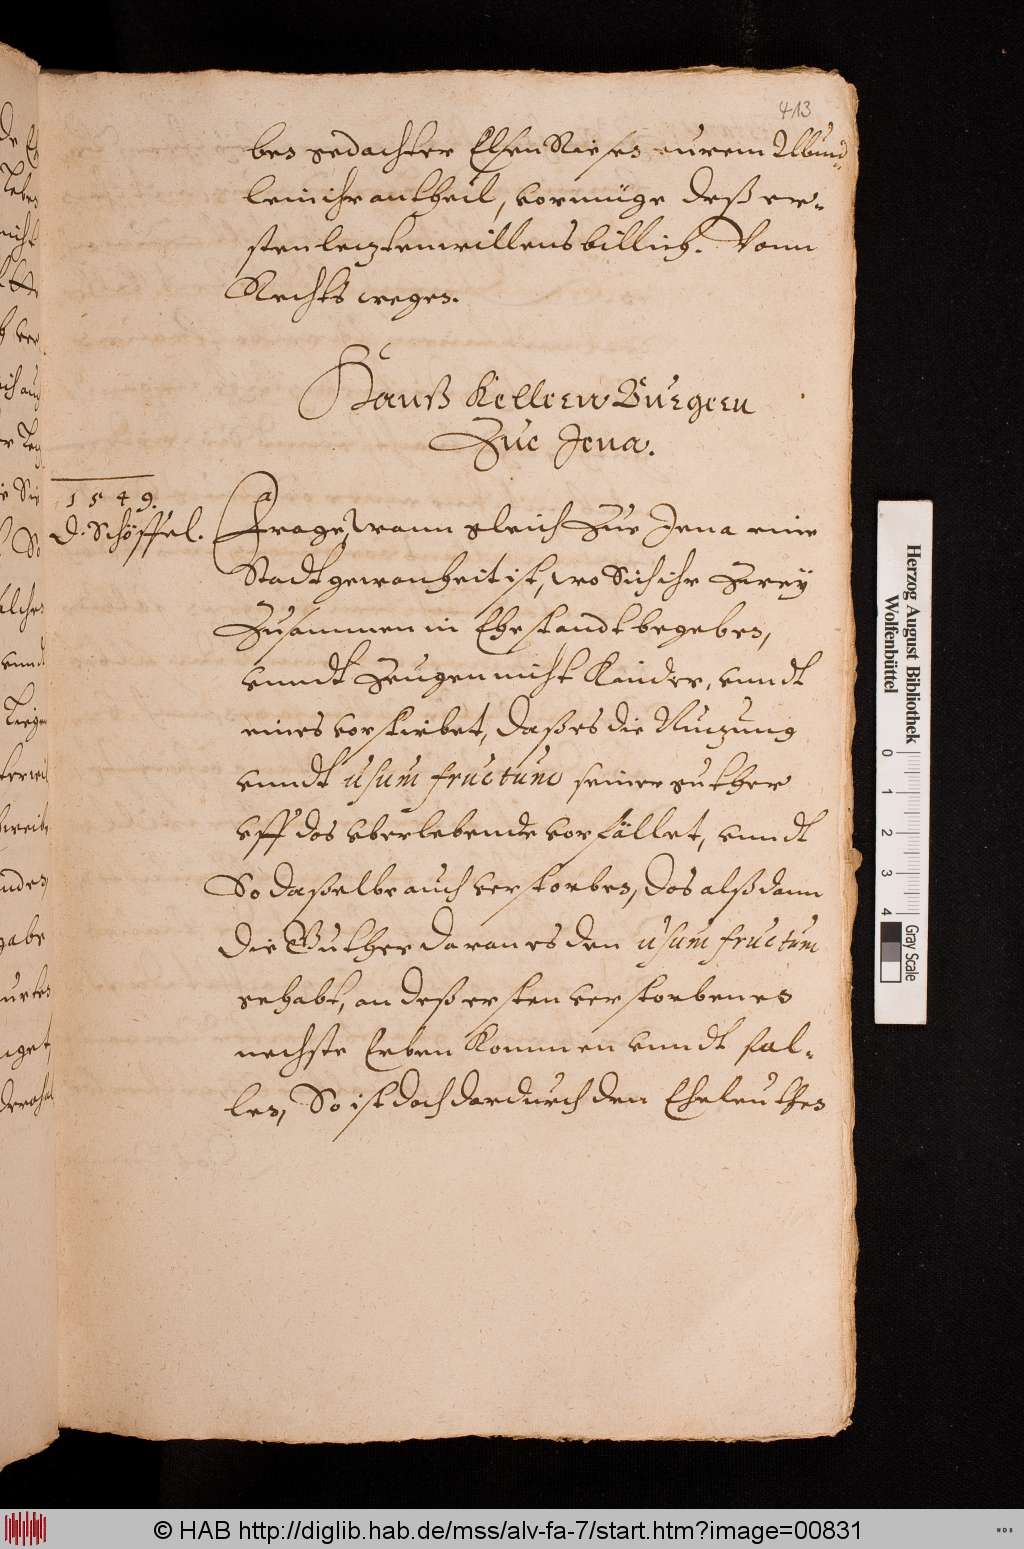 413
ben gedachter Elsen Niesen eurem Mund-
lein ihr antheil, vormüge deß er-
sten letzten willens billich. Vonn
Rechts wegen.
Hanß Kellern Bürgern
Zue Jena.
1549.
D. Schöffel.
Frage, Wann gleich Zue Jena eine
Stadtgewonheit ist, wo Sich ihr Zwey
Zusammen in Ehestandt begeben,
vnndt Zeugen nicht Kinder, vnndt
eines vorstirbet, daß es die Nutzung
vnndt usum fructum seiner guther
vff das vberlebende vorfället, vnndt
So daßelbe auch verstorben, das alß dann
die Guther daran es den usum fructum
gehabt, an deß ersten verstorbenes
nechste Erben Kommen vnndt fal-
len, So ist doch dardurch den Eheleuthen
Herzog August Bibliothek
Wolfenbüttel
0 1 2 3 4
Gray Scale
© HAB http://diglib.hab.de/mss/alv-fa-7/start.htm?image=00831